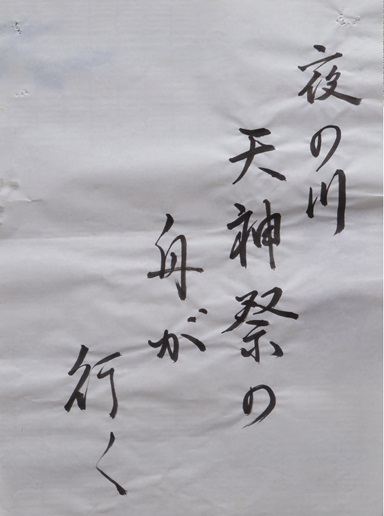 夜の川
天神祭の
舟が
行く